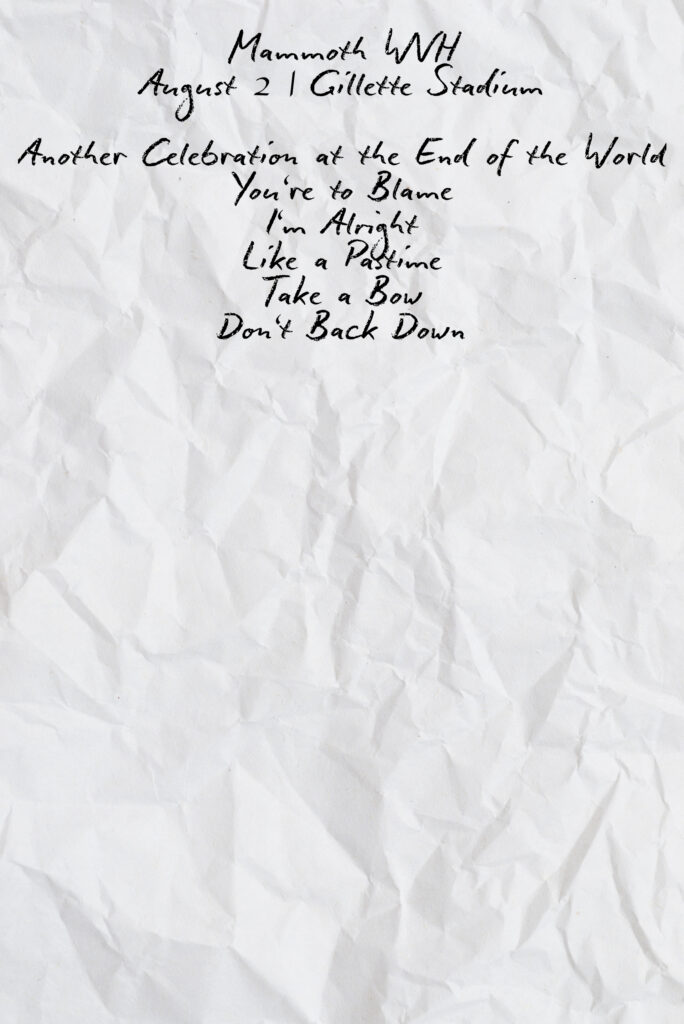 Mammoth WVH
August 2 | Gillette Stadium
Another Celebration at the End of the World
You're to Blame
I'm Alright
Like a Pastime
Take a Bow
Don't Back Down